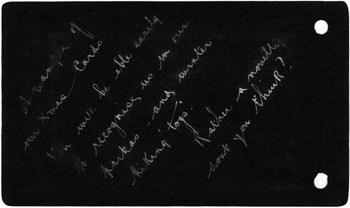 A sample of
our Xmas Cards
You will be able easily
to recognise us in our
parkas and winter
skiing "togs".
Rather a novelty
dont you think?